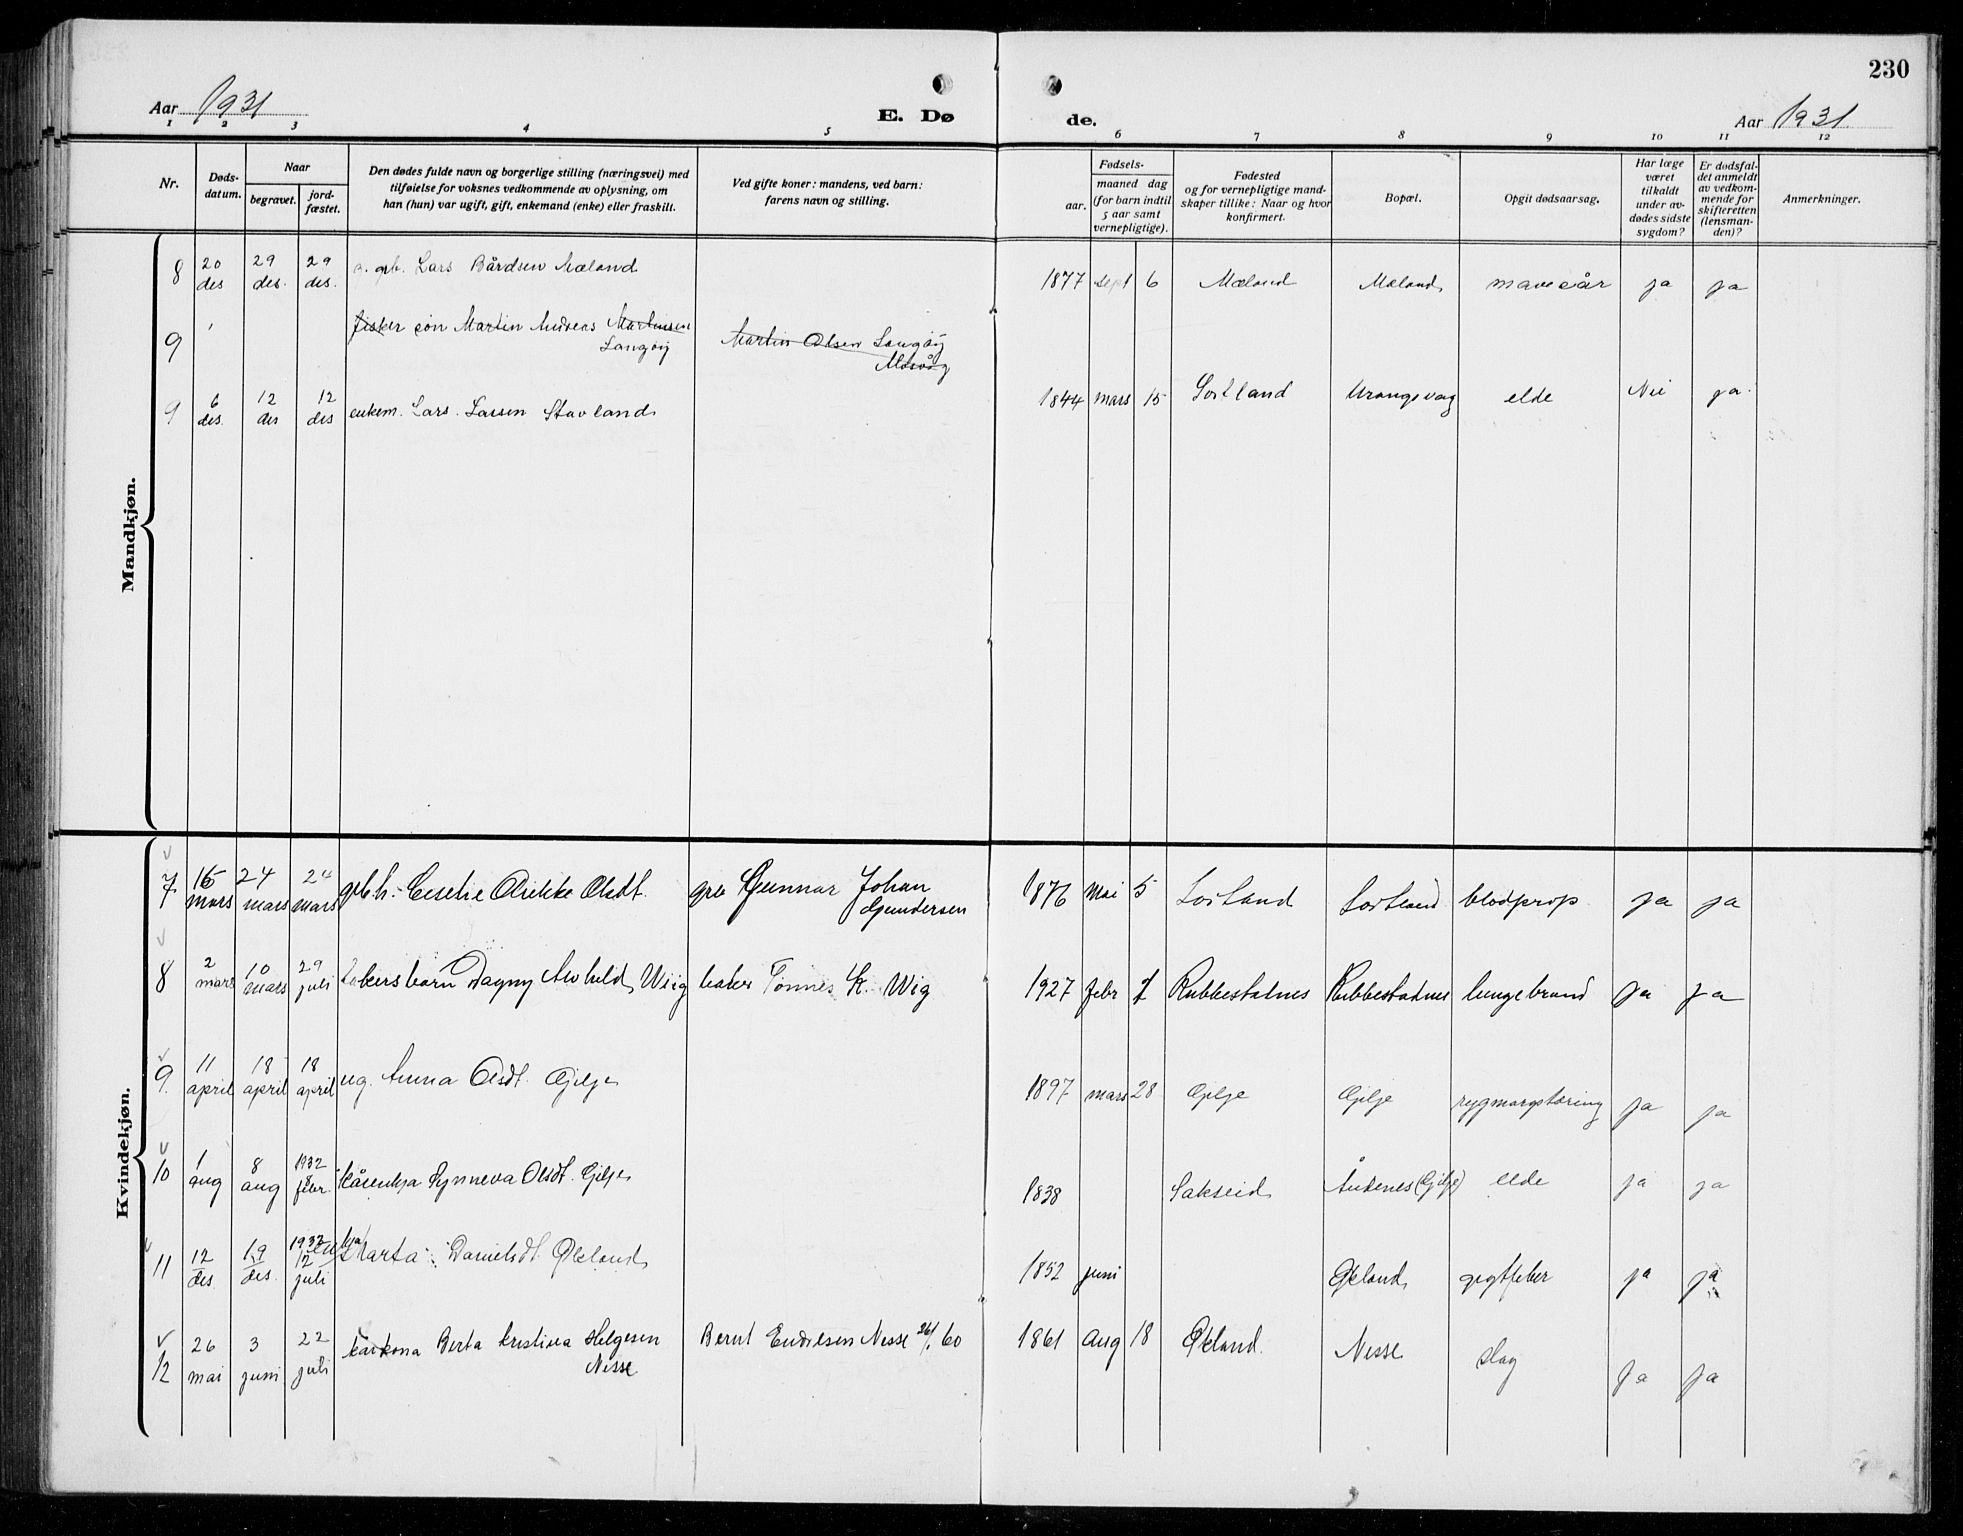 230
Aar 1931
E. Dø de.
Aar 1931
1 2 3 4 5 6 7 8 9 10 11 12
Nr.
Døds-
datum.
Naar
begravet.
jord-
fæstet.
Den dødes fulde navn og borgerlige stilling (næringsvei) med
tilføielse for voksnes vedkommende av oplysning, om
han (hun) var ugift, gift, enkemand (enke) eller fraskilt.
Ved gifte koner: mandens, ved barn:
farens navn og stilling.
Fødsels-
aar.
maaned dag
(for barn indtil
5 aar samt
vernepligtige).
Fødested
og for vernepligtige mand-
skaper tillike: Naar og hvor
konfirmert.
Bopæl.
Opgit dødsaarsag.
Har læge
været
tilkaldt
under av-
dødes sidste
sygdom?
Er dødsfal-
det anmeldt
av vedkom-
mende for
skifteretten
(lensman-
den)?
Anmerkninger.
Mandkjøn.
8 20 des 29 des. 29 des. grb. Lars Bårdsen Mæland 1877 sept 6 Mæland Mæland mavesår ja ja
9 fisker søn Martin Andreas Martinsen
Langøy
Martin Olsen Langøy
Mosvåg
9 6 des. 12 des 12 des enkem. Lars Larsen Stavland 1844 mars 15 Sortland Urangsvag elde Nei ja.
Kvindekjøn.
7 15 mars 24 mars 24 mars grb.h. Olsdt. grb Gunnar Johan
Gundersen
1876 Mai 5 Sortland Sortland blodprop ja ja
8 2 mars 10 mars 29 juli bakers barn Dagny Wiig baker Tønnes K. Wiig 1927 febr 7 Rubbestadnes Rubbestadnes lungebrand ja ja
9 11 april 18 april 18 april ug. Anna Olsdt. Gilje 1897 mars 28 Gilje Gilje rygmargstæring ja ja
10 1 aug 8 aug 1932 8 febr. kårenkja Synneva Olsdt. Gilje 1838 Sakseid (Gilje) elde ja ja
11 12 des. 19 des. 1932 12 juli enkja Marta Danielsdt. Økland 1852 juni Økland gigtfeber ja ja
12 26 mai 3 juni 22 juli kårkona Berta Kristina Helgesen
Nesse
Bernt Endresen Nesse 26/1 60 1861 aug 18 Økland. Nesse slag ja ja